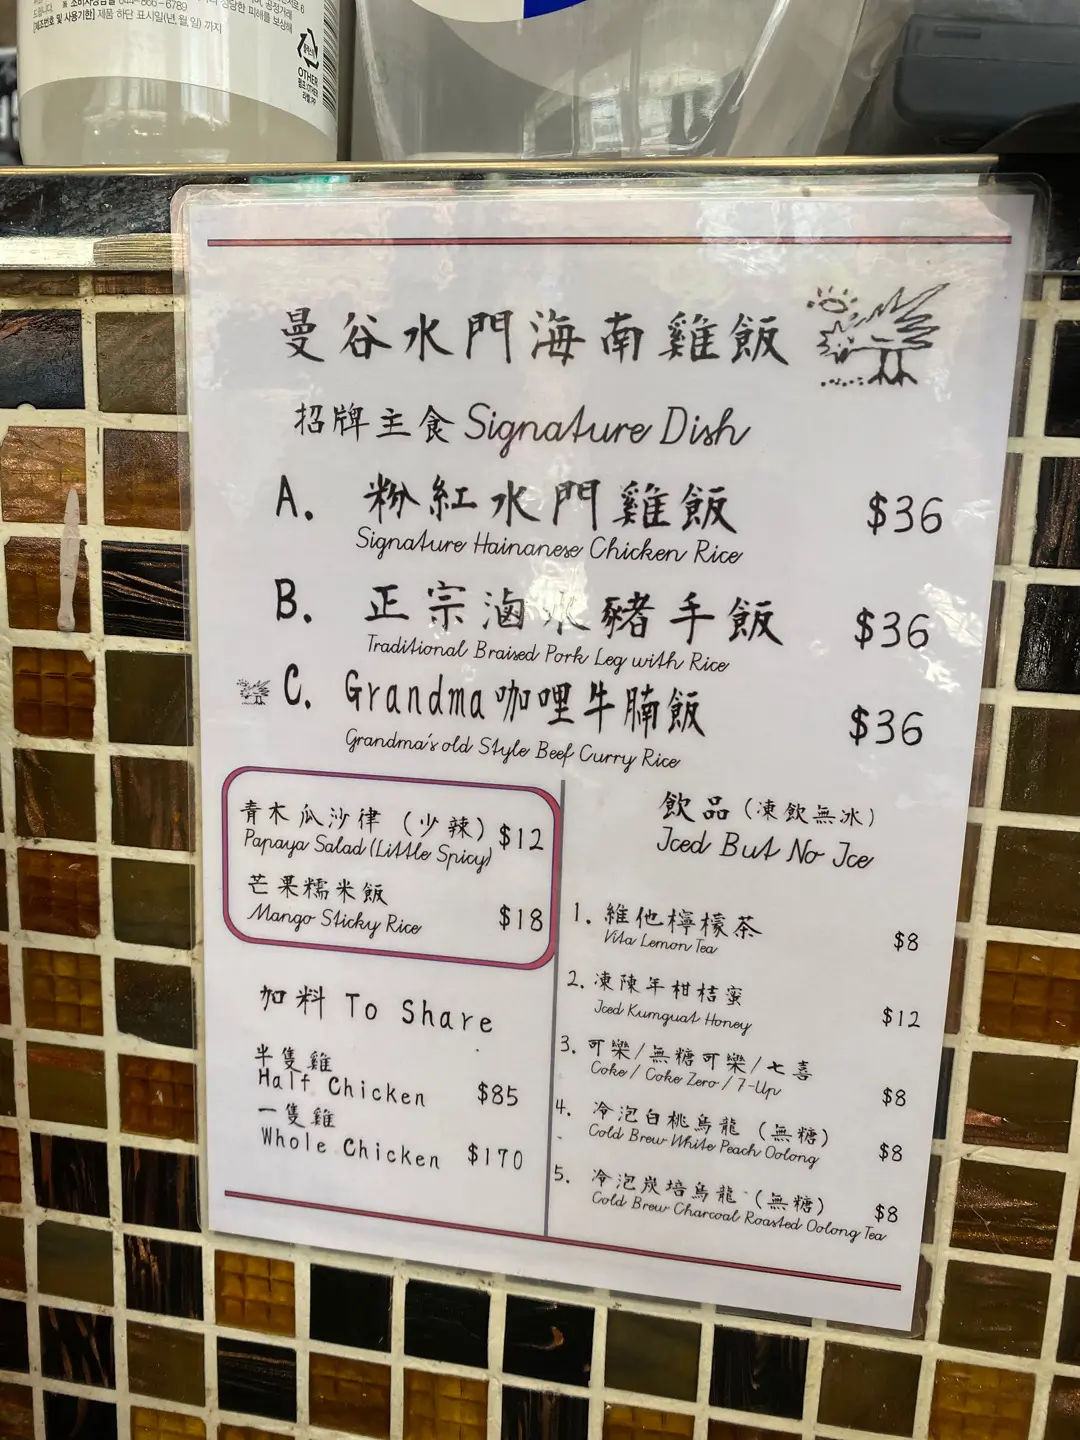 소비자상담실 044-866-6789
[제조번호 및 사용기한] 제품 하단 표시일(년,월,일) 까지
OTHER
曼谷水門海南雞飯
招牌主食 Signature Dish
A. 粉紅水門雞飯 $36
Signature Hainanese Chicken Rice
B. 正宗滷水豬手飯 $36
Traditional Braised Pork Leg with Rice
C. Grandma咖哩牛腩飯 $36
Grandma's old Style Beef Curry Rice
青木瓜沙律 (少辣) $12
Papaya Salad (Little Spicy)
芒果糯米飯
Mango Sticky Rice $18
加料 To Share
半隻雞
Half Chicken $85
一隻雞
Whole Chicken $170
飲品 (凍飲無冰)
Iced But No Ice
1. 維他檸檬茶 $8
Vita Lemon Tea
2. 凍陳年柑桔蜜 $12
Iced Kumguat Honey
3. 可樂/無糖可樂/七喜 $8
Coke / Coke Zero / 7-Up
4. 冷泡白桃烏龍 (無糖) $8
Cold Brew White Peach Oolong
5. 冷泡炭培烏龍 (無糖) $8
Cold Brew Charcoal Roasted Oolong Tea